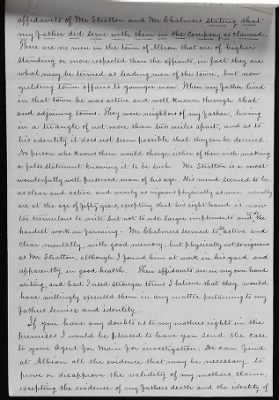 affidavits of Mr Stratton and Mr Chalmers stating that
my father did serve with them in the company as claimed.
There are no men in the town of Albion that are of higher
standing or more respected than the affiants, in fact they are
what may be termed as leading men of the town, but now
yielding town affairs to younger men. When my father lived
in that town he was active and well known through that
and adjoining towns. They were neighbors of my father, living
in a triangle of not more than two miles apart, and as to
his identity it does not seem possible that they can be deceived.
No person who knows them would charge either of them with making
a false statement knowing it to be such. Mr Stratton is a most
wonderfully well preserved man of his age. His mind seemed to be
as clear and active and nearly as vigorous physically as men usually
are at the age of fifty years, excepting that his right hand is now
too tremulous to write but not to use large implements and do the
hardest work in farming. Mr Chalmers seemed to be active and
clear mentally, with good memory, but physically not so vigorous
as Mr Stratton, although I found him at work in his yard and
apparently in good health. Their affidavits are in my own hand
writing, and had I used stronger terms I believe that they would
have willingly executed them in any matter pertaining to my
fathers service and identity.
If you have any doubts as to my mothers rights in the
premises I would be pleased to have you send the case
to your Agent for Maine for investigation. He can find
at Albion all the evidence that may be necessary to
prove or disapprove the validity of my mothers claim,
excepting the evidence of my fathers death and the identity of